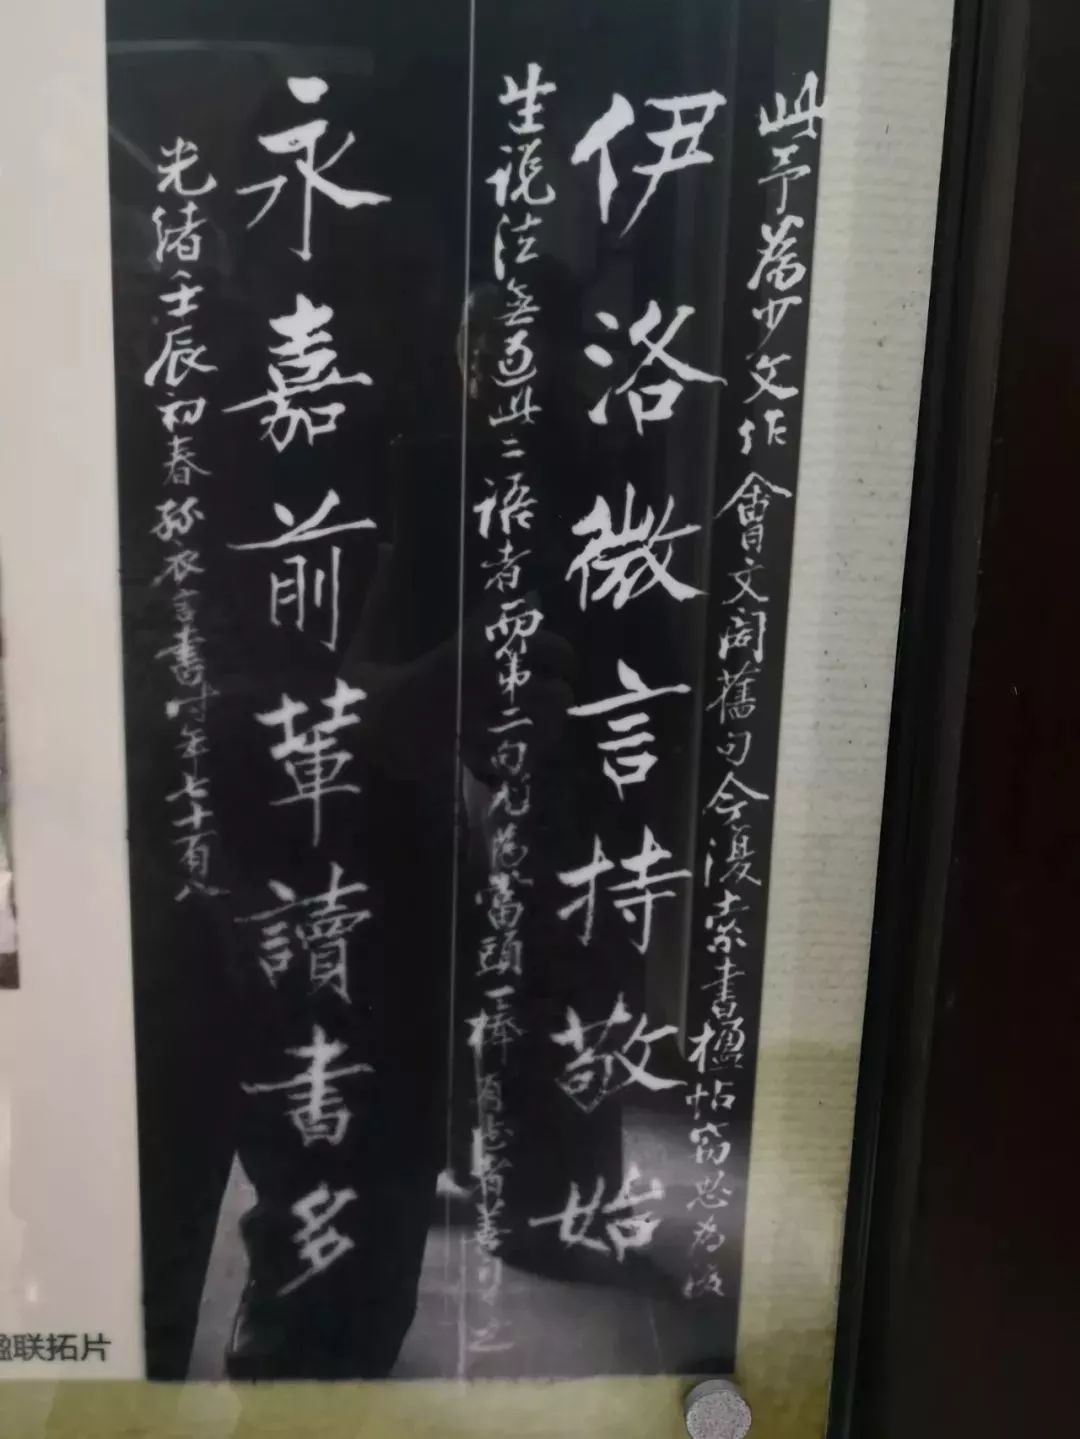 此予为少文作會文阁舊句今復索書楹帖窃思为後
伊洛微言持敬始
生说法無过此二语者而第二句尤为當頭一棒有志者善自之
永嘉前輩讀書多
光绪壬辰初春孫衣言書时年七十有八
楹联拓片